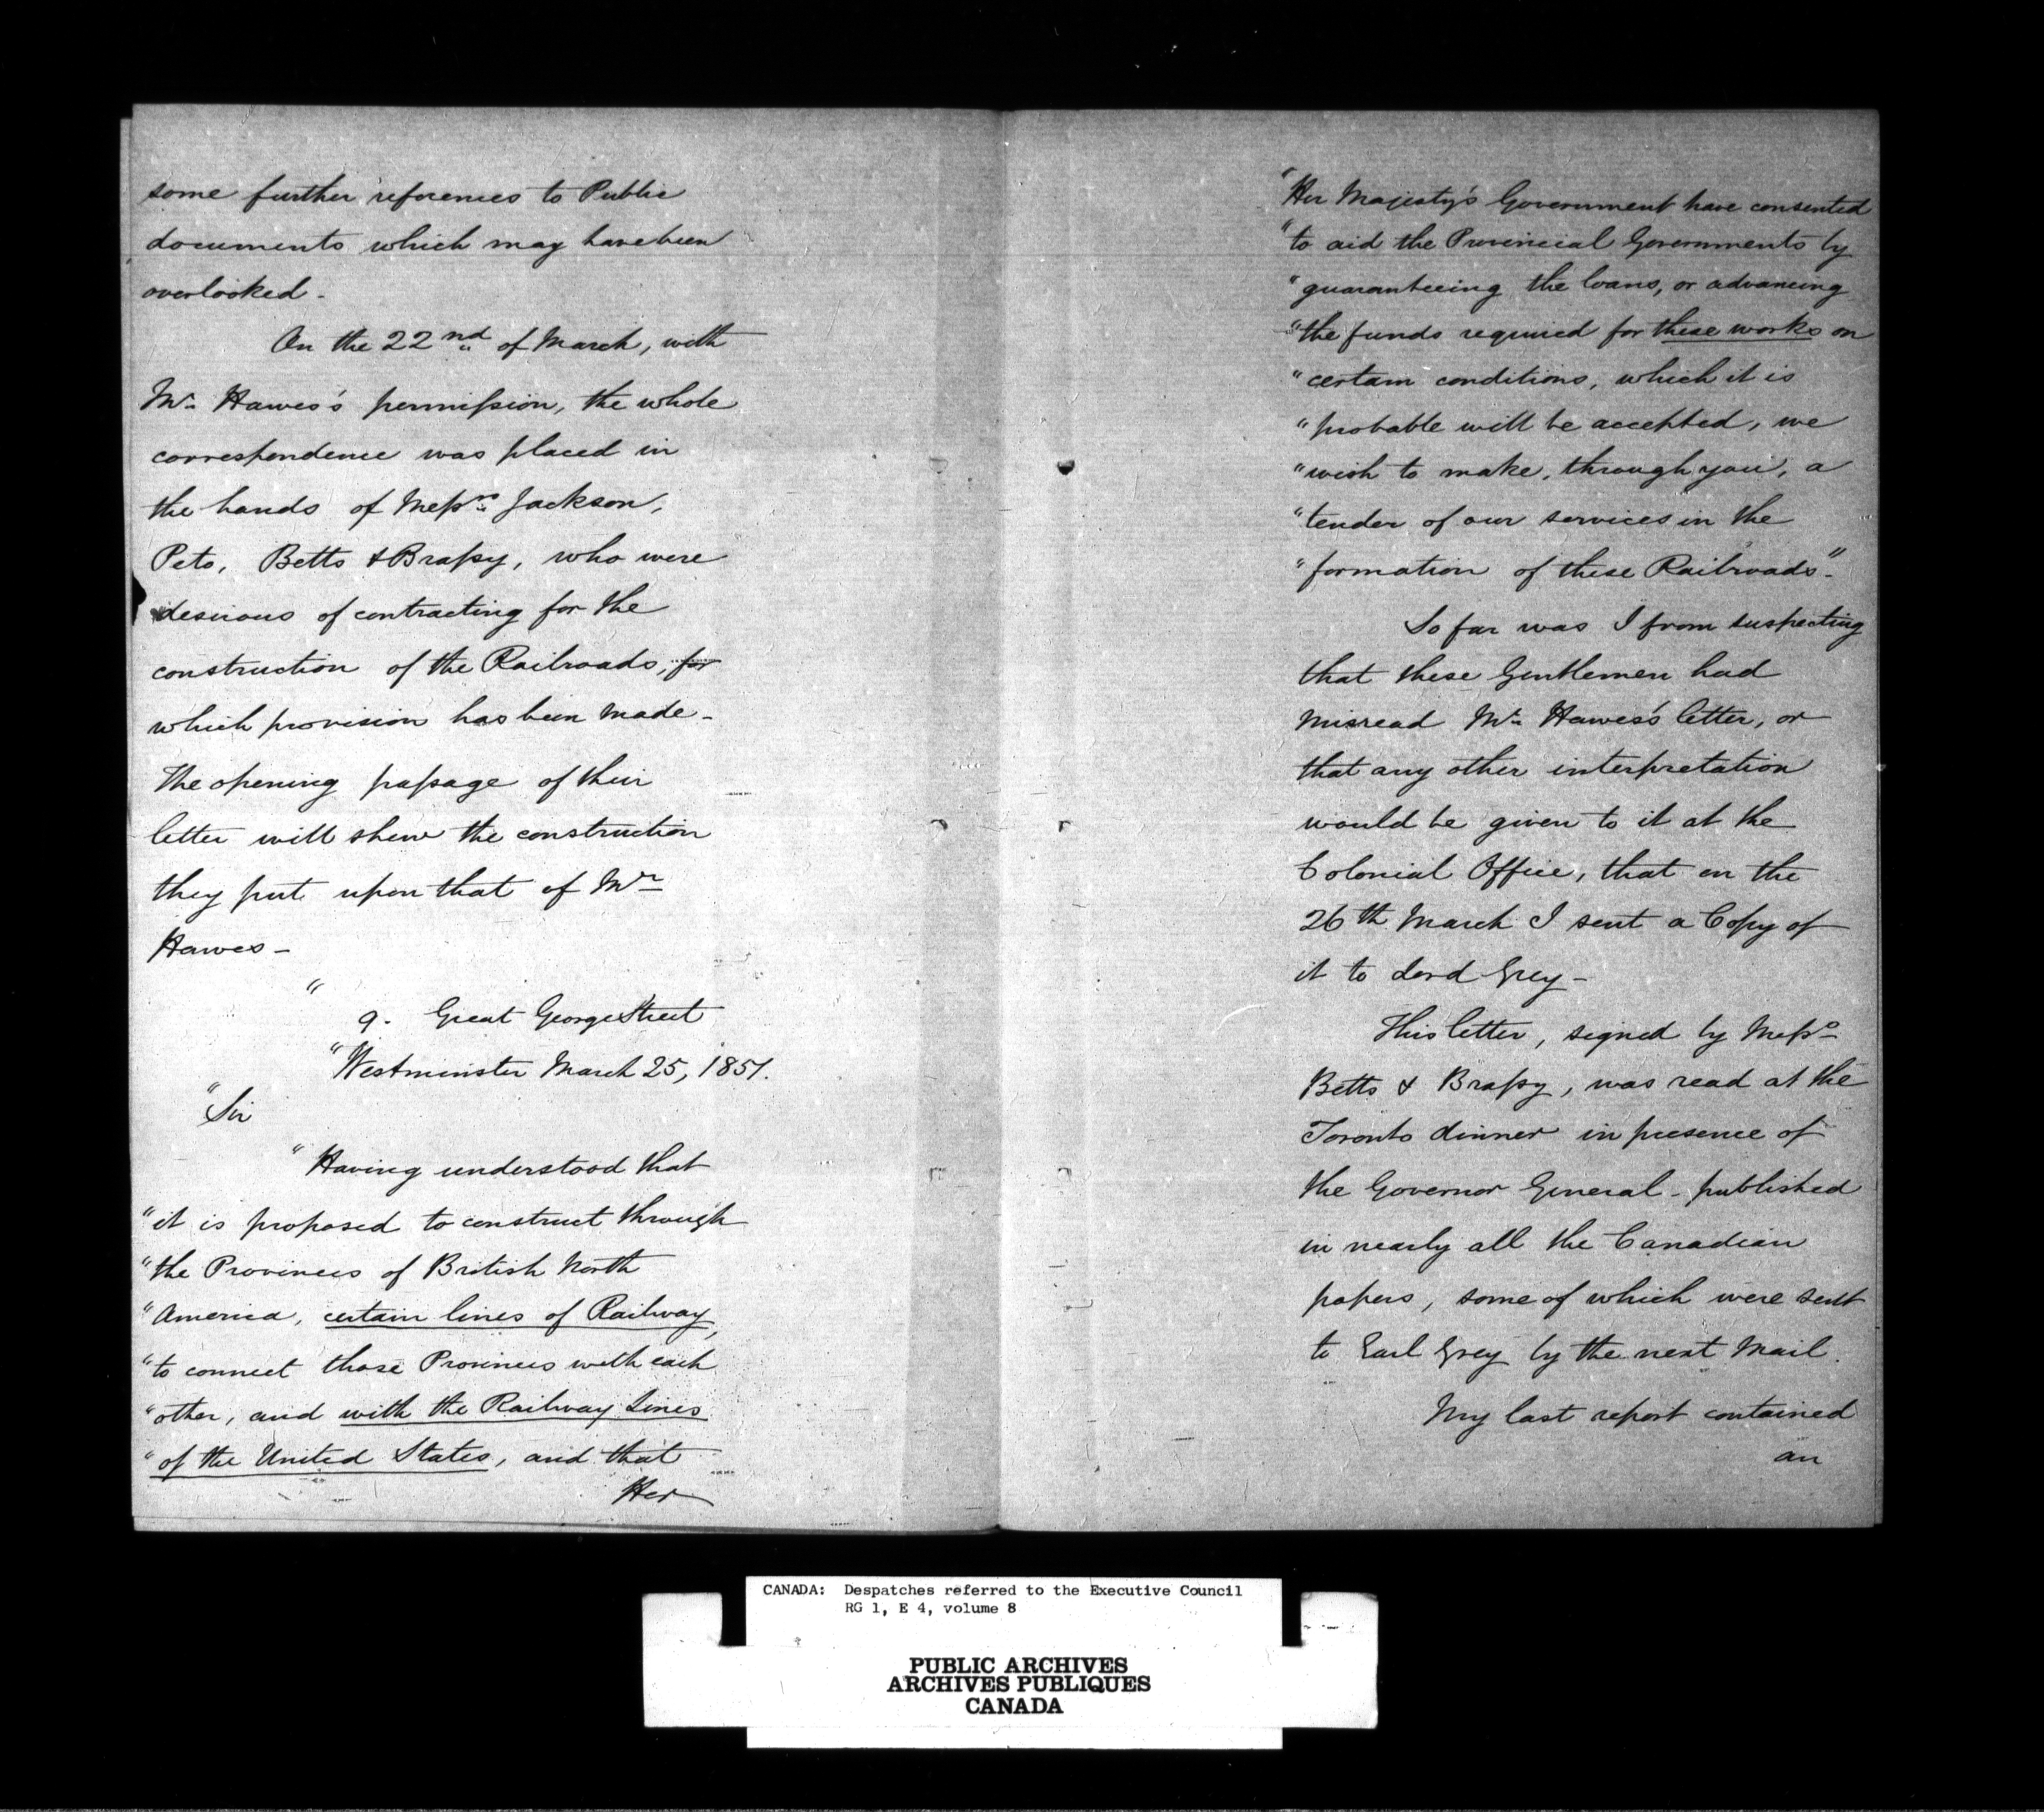 some further references to Public
documents which may have been
overlooked -
On the 22nd of March, with
Mr. Hawes's permission, the whole
correspondence was placed in
the hands of Messrs. Jackson,
Peto, Betts & Brassy, who were
desirous of contracting for the
construction of the Railroads, for
which provision has been made -
The opening passage of their
letter will shew the construction
they put upon that of Mr
Hawes -
"
9. Great George Street
"Westminster March 25, 1851.
"Sir
"Having understood that
"it is proposed to construct through
"the Provinces of British North
"America, certain lines of Railway,
"to connect those Provinces with each
"other, and with the Railway Lines
"of the United States, and that
Her
"Her Majesty's Government have consented
"to aid the Provincial Governments by
"guaranteeing the loans, or advancing
"the funds required for these works on
"certain conditions, which it is
"probable will be accepted, we
"wish to make, through you, a
"tender of our services in the
"formation of these Railroads."
So far was I from suspecting
that these Gentlemen had
misread Mr. Hawes's letter, or
that any other interpretation
would be given to it at the
Colonial Office, that on the
26th March I sent a Copy of
it to Lord Grey -
This letter, signed by Messs.
Betts & Brassy, was read at the
Toronto dinner in presence of
the Governor General - published
in nearly all the Canadian
papers, some of which were sent
to Earl Grey by the next Mail.
My last report contained
an
CANADA: Despatches referred to the Executive Council
RG 1, E 4, volume 8
PUBLIC ARCHIVES
ARCHIVES PUBLIQUES
CANADA